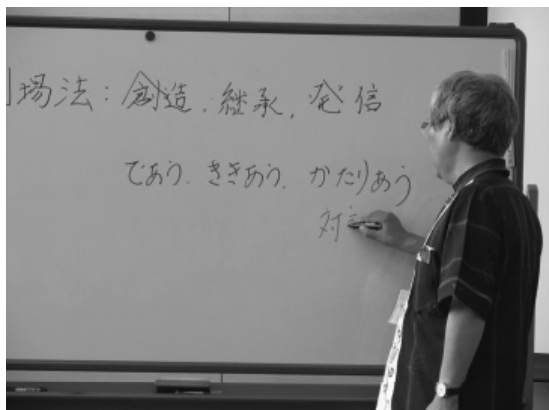 場法：創造、継承、発信
であう、ききあう、かたりあう
対